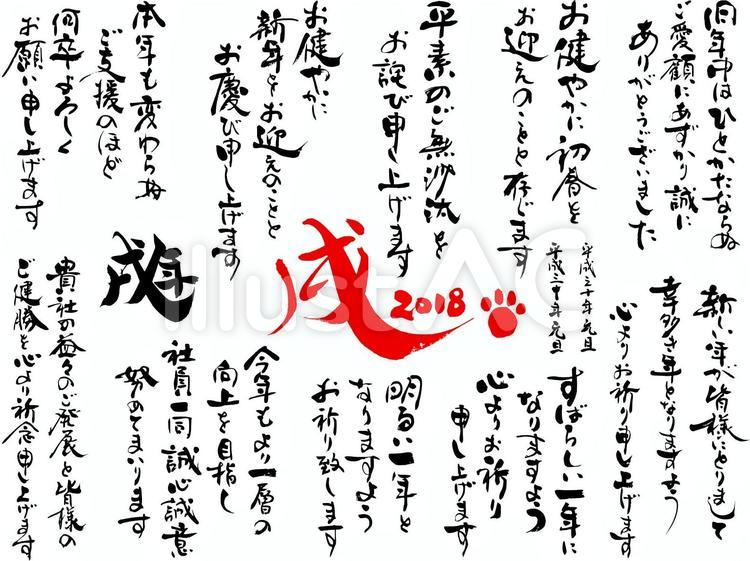 旧年中はひとかたならぬ
ご愛顧にあずかり誠に
ありがとうございました
お健やかに初春を
お迎えのことと存じます
平素のご無沙汰を
お詫び申し上げます
お健やかに
新年をお迎えのことと
お慶び申し上げます
本年も変わらぬ
ご支援のほど
何卒よろしく
お願い申し上げます
戌
2018
平成三十年元旦
平成三十年元旦
戌年
新しい年が皆様にとりまして
幸多き年となりますよう
心よりお祈り申し上げます
すばらしい一年に
なりますよう
心よりお祈り
申し上げます
明るい一年と
なりますよう
お祈り致します
今年もより一層の
向上を目指し
社員一同誠心誠意
努めてまいります
貴社の益々のご発展と皆様の
ご健勝を心より祈念申し上げます
illustAC